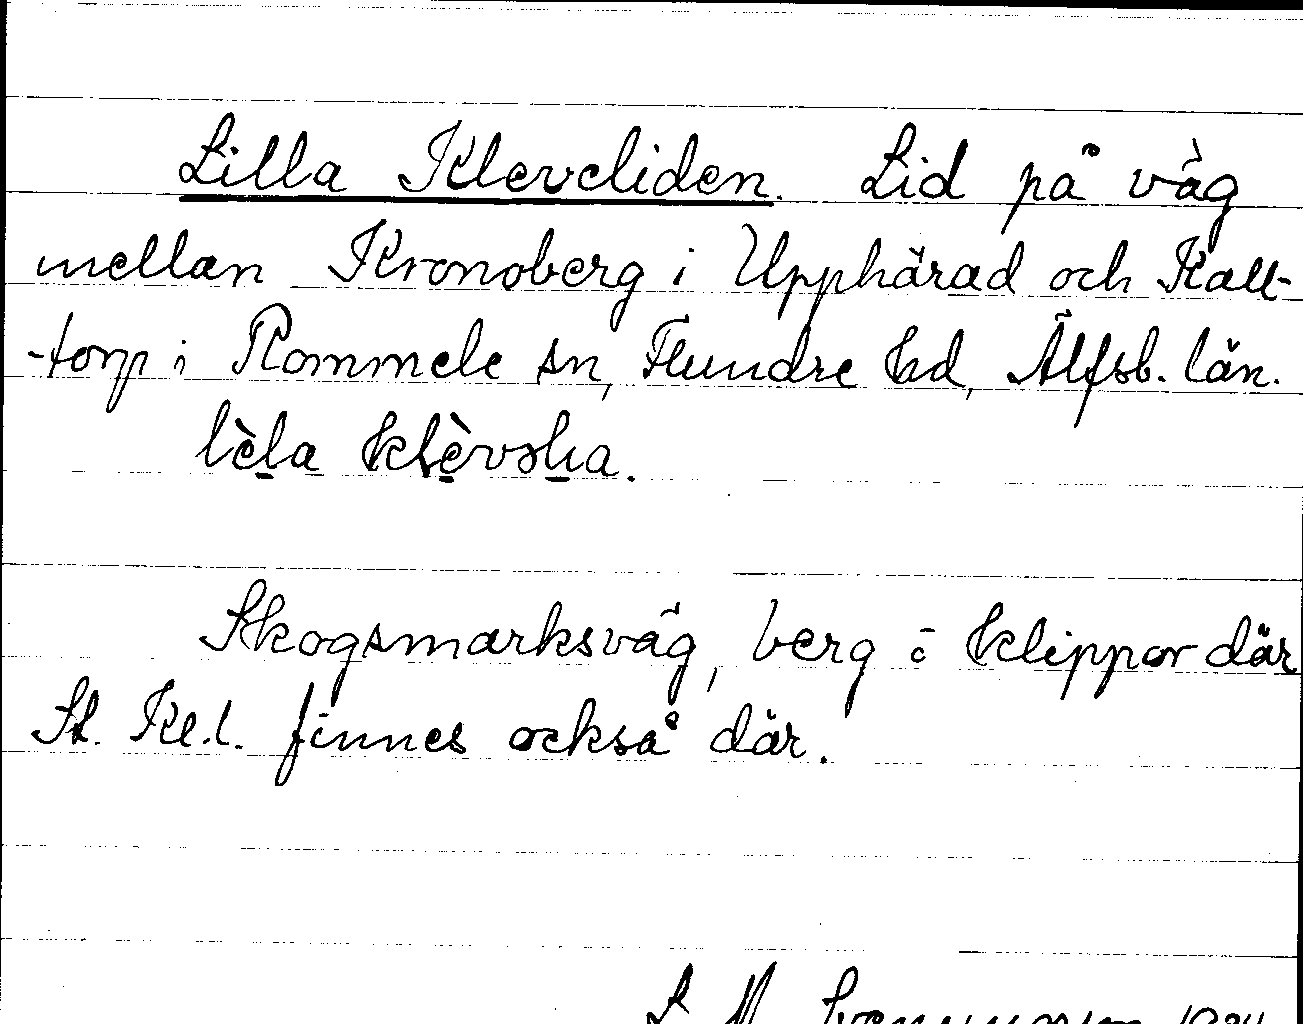 Lilla Kleveliden. Lid på väg
mellan Kronoberg i Upphärad och Kall-
-torp i Rommele sn, Flundre hd, Älfsb. län.
lèla
Skogsmarksväg, berg o klippor där
St. Kl.l. finnes också där.